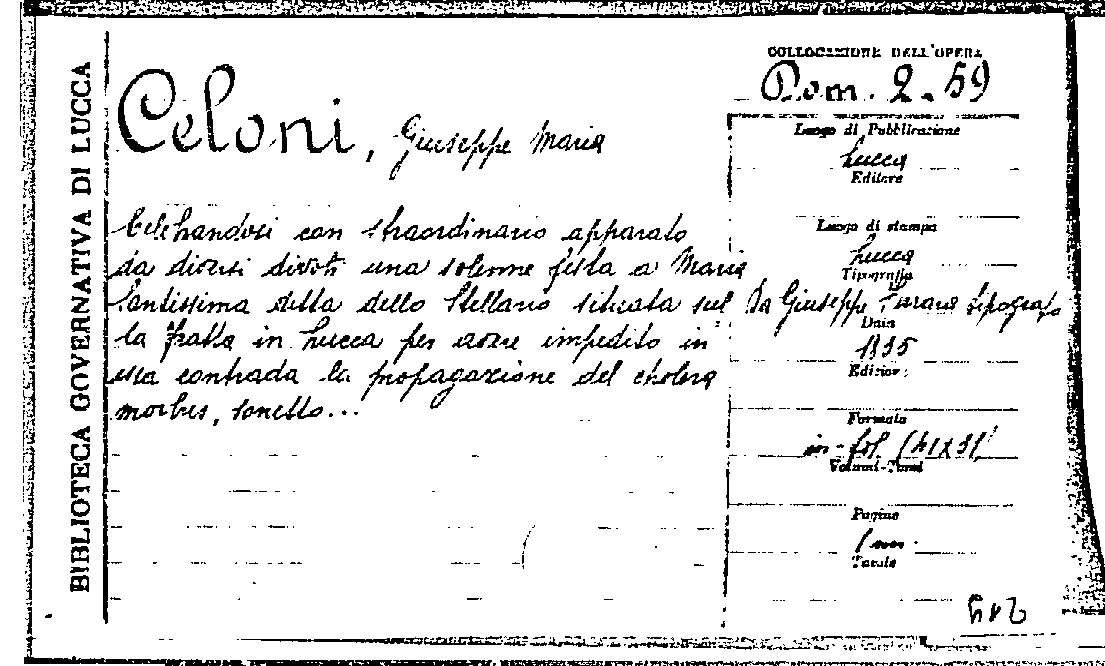 BIBLIOTECA GOVERNATIVA DI LUCCA
Celoni, Giuseppe Maria
Celebrandosi con straordinario apparato
da diversi divoti una solenne festa a Maria
Santissima detta dello Stellario situata sul
la Fratta in Lucca per avere impedito in
essa contrada la propagazione del cholera
morbus, sonetto...
COLLOCAZIONE DELL'OPERA
Dom. 2. 59
Luogo di Pubblicazione
Lucca
Editore
Luogo di stampa
Lucca
Tipografia
Da Giuseppe tipografo
Data
1835
Edizione
Formato
in-fol. (41x31)
Volumi-Tomi
Pagine
1
Tavole